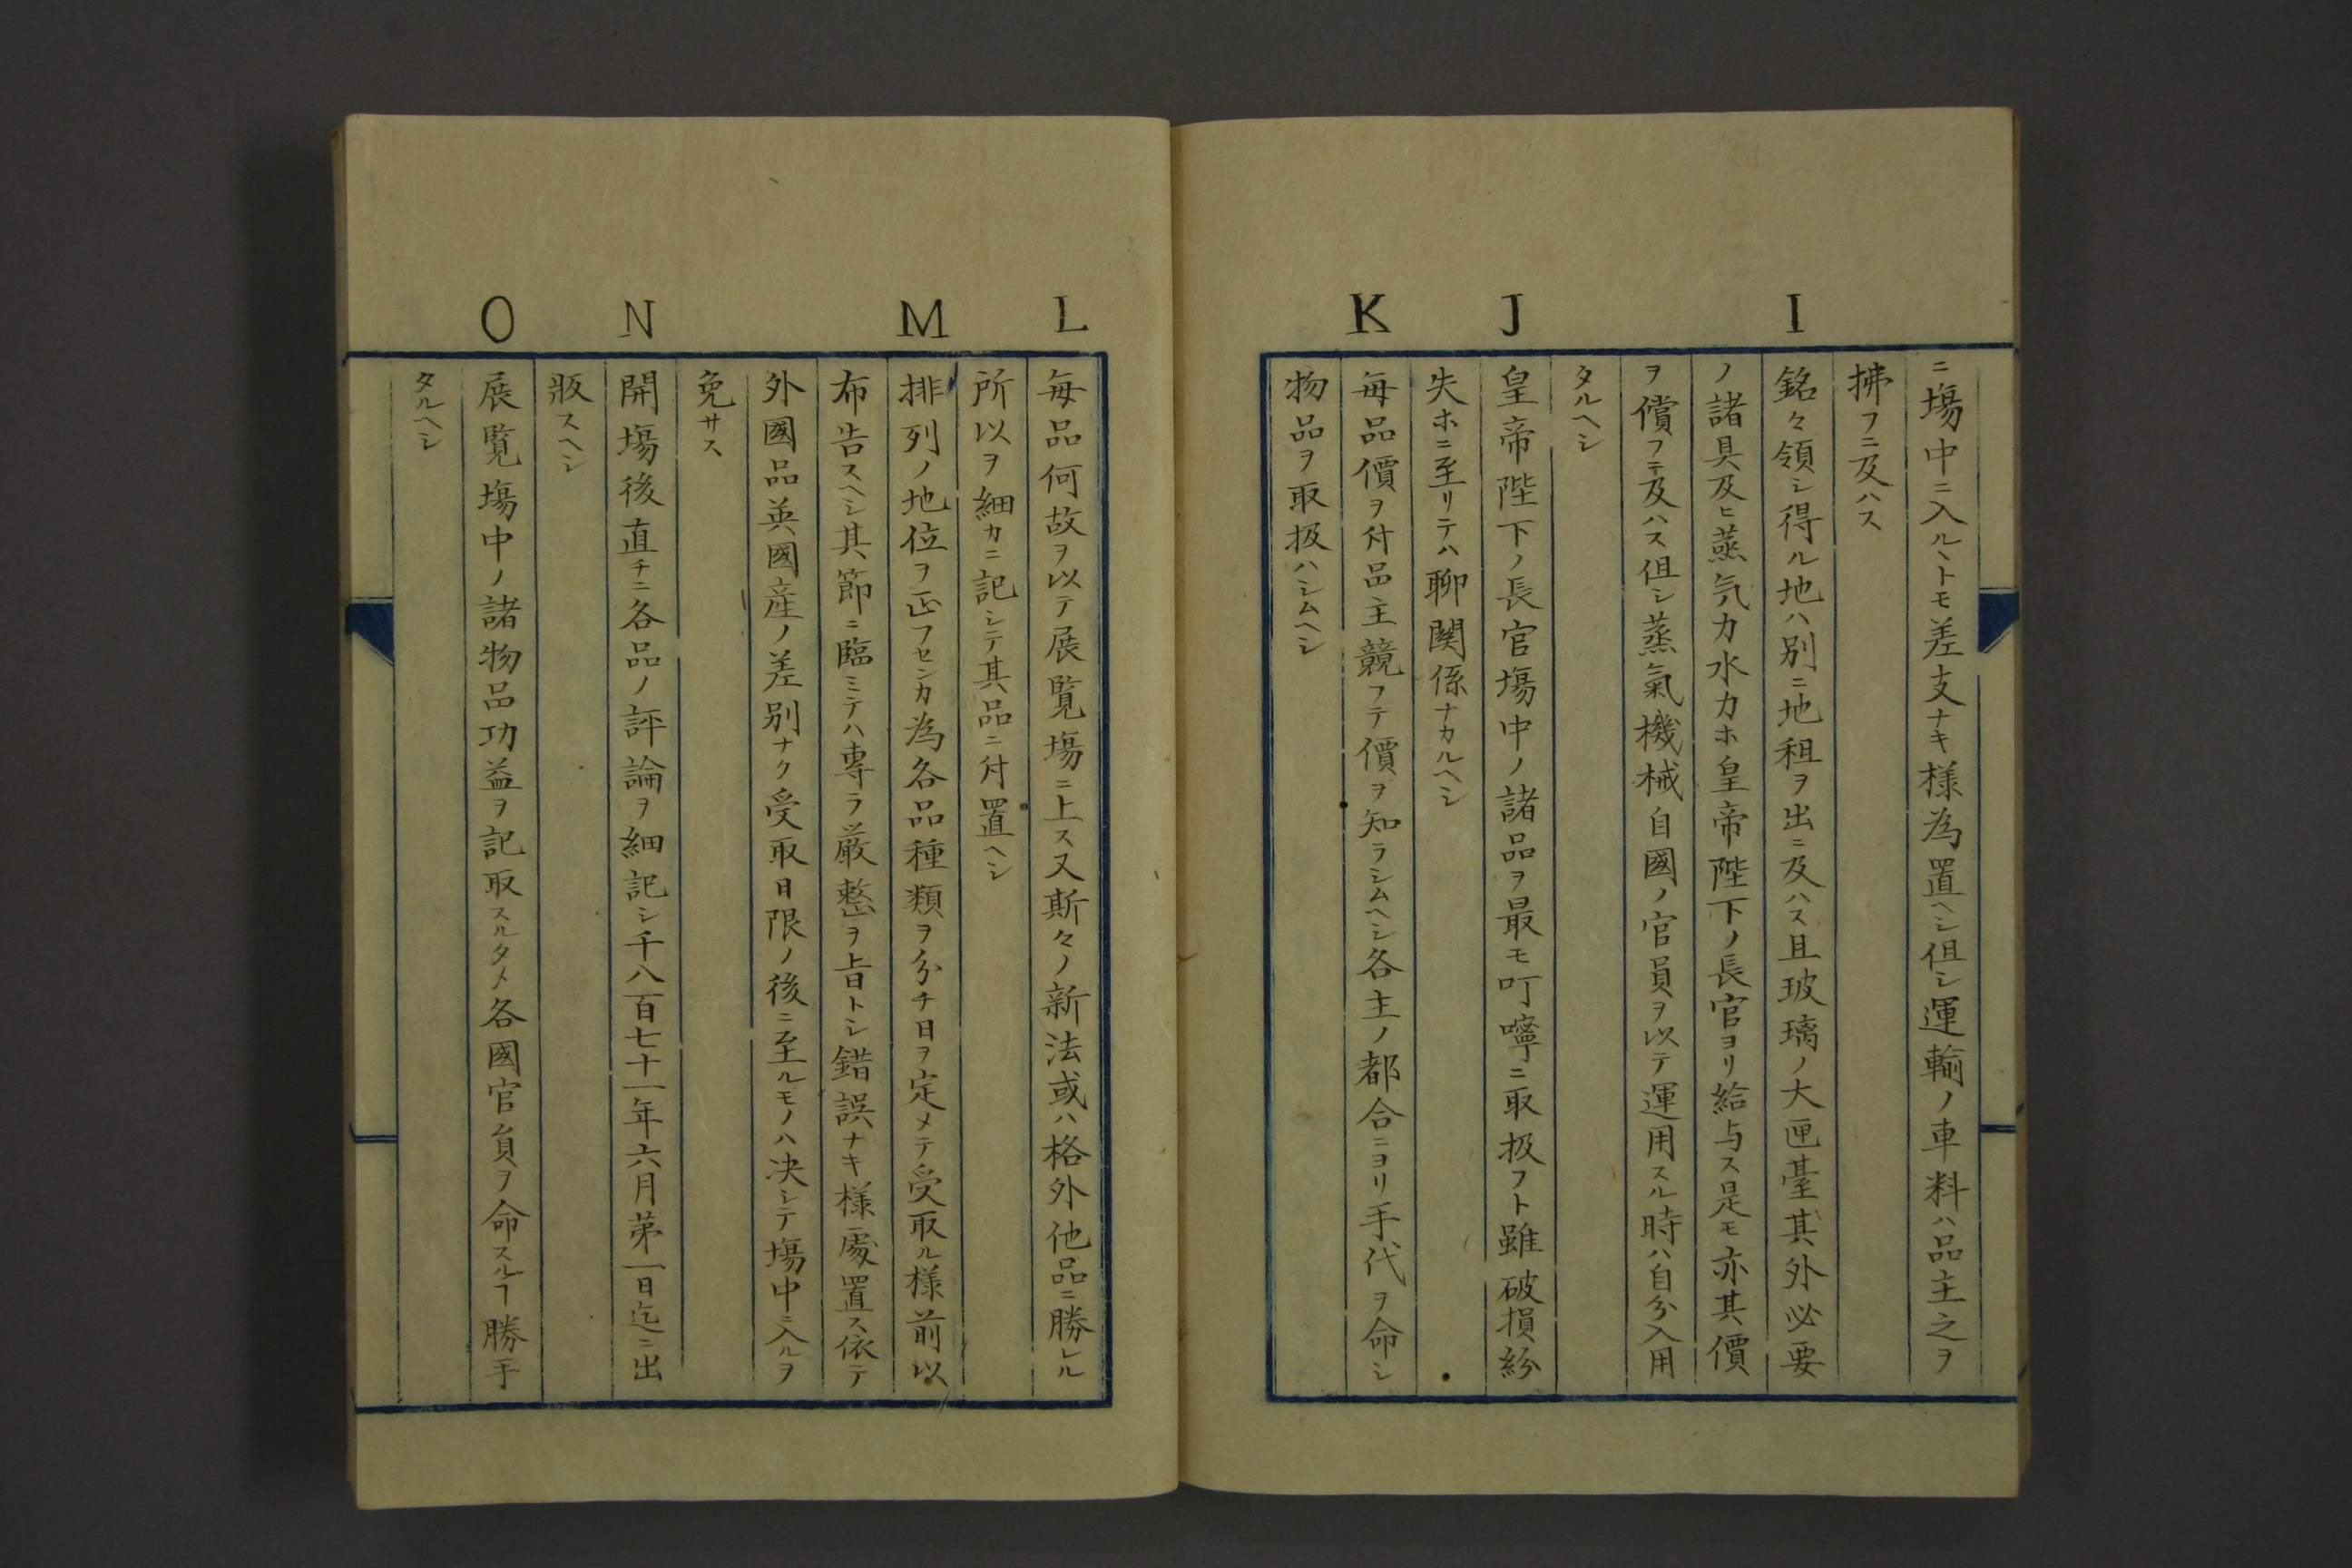 ニ場中ニ入ルヽトモ差支ナキ様為置ヘシ但シ運輸ノ車料ハ品主之ヲ
拂フニ及ハス
I
銘々領シ得ル地ハ別ニ地租ヲ出ニ及ハス且玻璃ノ大匣臺其外必要
ノ諸具及ヒ蒸気力水力ホ皇帝陛下ノ長官ヨリ給与ス是モ亦其價
ヲ償フニ及ハス但シ蒸氣機械自國ノ官員ヲ以テ運用スル時ハ自分入用
タルヘシ
J
皇帝陛下ノ長官場中ノ諸品ヲ最モ叮嚀ニ取扱フト雖破損紛
失ホニ至リテハ聊関係ナカルヘシ
K
毎品價ヲ付品主競フテ價ヲ知ラシムヘシ各主ノ都合ニヨリ手代ヲ命シ
物品ヲ取扱ハシムヘシ
L
毎品何故ヲ以テ展覧場ニ上ス又斯々ノ新法或ハ格外他品ニ勝レル
所以ヲ細カニ記シテ其品ニ付置ヘシ
M
排列ノ地位ヲ正フセンカ為各品種類ヲ分チ日ヲ定メテ受取ル様前以
布告スヘシ其節ニ臨ミテハ専ラ厳整ヲ旨トシ錯誤ナキ様處置ス依テ
外國品英國産ノ差別ナク受取日限ノ後ニ至ルモノハ决シテ場中ニ入ルヲ
免サス
N
開場後直チニ各品ノ評論ヲ細記シ千八百七十一年六月第一日迄ニ出
版スヘシ
O
展覧場中ノ諸物品功益ヲ記取スルタメ各國官員ヲ命スルヿ勝手
タルヘシ